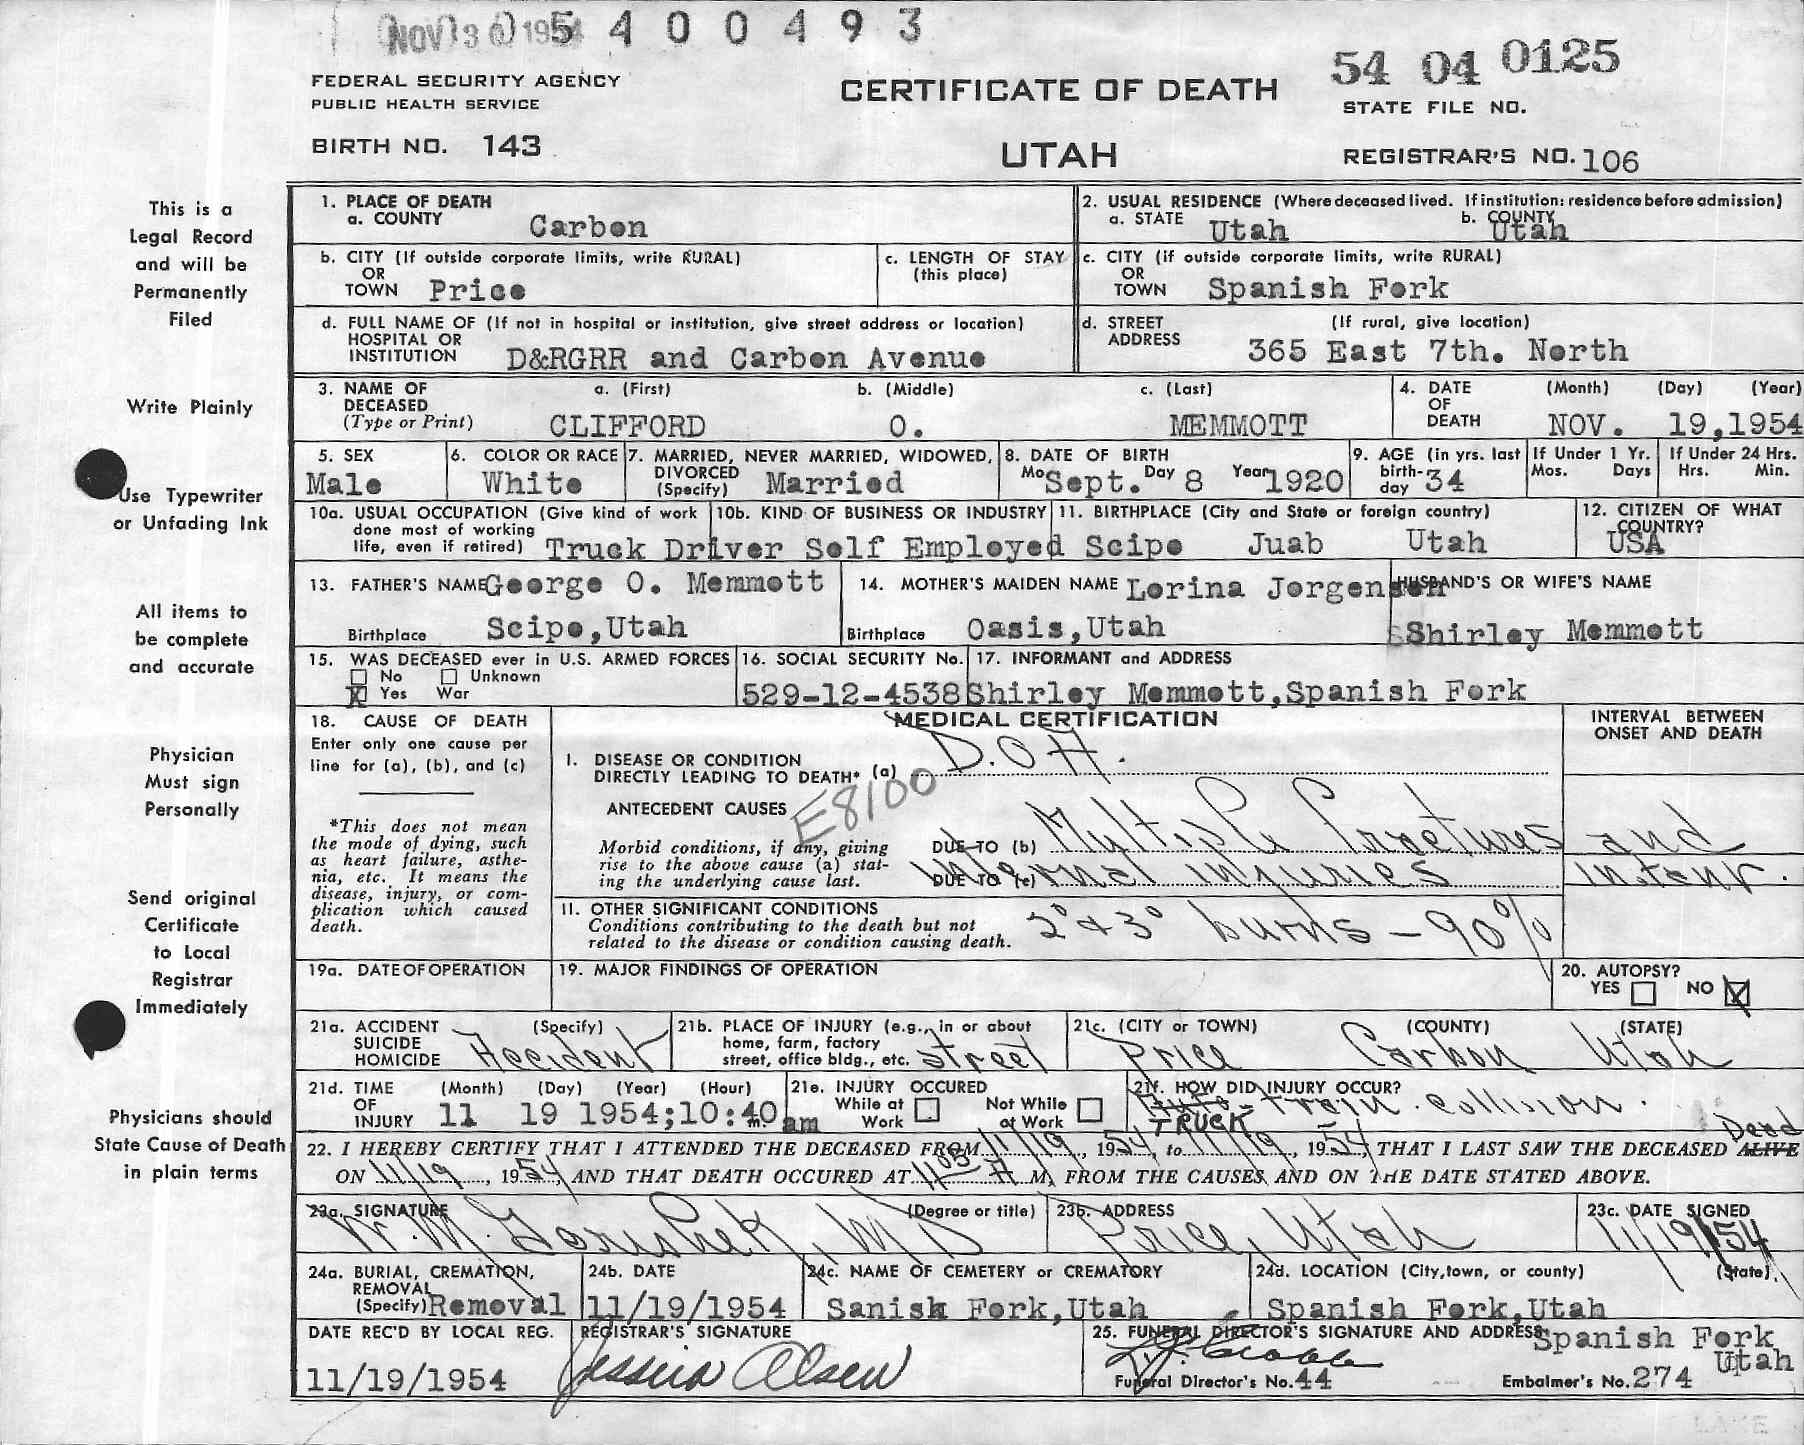 NOV 30 1954 5 4 0 0 4 9 3
54 04 0125
FEDERAL SECURITY AGENCY
PUBLIC HEALTH SERVICE
CERTIFICATE OF DEATH
STATE FILE NO.
BIRTH NO. 143
UTAH
REGISTRAR'S NO. 106
This is a
Legal Record
and will be
Permanently
Filed
Write Plainly
Use Typewriter
or Unfading Ink
All items to
be complete
and accurate
Physician
Must sign
Personally
Send original
Certificate
to Local
Registrar
Immediately
Physicians should
State Cause of Death
in plain terms
1. PLACE OF DEATH
a. COUNTY Carbon
2. USUAL RESIDENCE (Where deceased lived. If institution: residence before admission)
a. STATE Utah b. COUNTY Utah
b. CITY (If outside corporate limits, write RURAL)
OR
TOWN Price
c. LENGTH OF STAY
(this place)
c. CITY (if outside corporate limits, write RURAL)
OR
TOWN Spanish Fork
d. FULL NAME OF (If not in hospital or institution, give street address or location)
HOSPITAL OR
INSTITUTION D&RGRR and Carbon Avenue
d. STREET (If rural, give location)
ADDRESS 365 East 7th. North
3. NAME OF a. (First) b. (Middle) c. (Last)
DECEASED
(Type or Print) CLIFFORD O. MEMMOTT
4. DATE (Month) (Day) (Year)
OF
DEATH NOV. 19,1954
5. SEX
Male
6. COLOR OR RACE
White
7. MARRIED, NEVER MARRIED, WIDOWED,
DIVORCED
(Specify) Married
8. DATE OF BIRTH
Mo Sept. Day 8 Year 1920
9. AGE (in yrs. last
birth-
day 34
If Under 1 Yr.
Mos. Days
If Under 24 Hrs.
Hrs. Min.
10a. USUAL OCCUPATION (Give kind of work
done most of working
life, even if retired) Truck Driver
10b. KIND OF BUSINESS OR INDUSTRY
Self Employed
11. BIRTHPLACE (City and State or foreign country)
Scipo Juab Utah
12. CITIZEN OF WHAT
COUNTRY?
USA
13. FATHER'S NAME George O. Memmott
Birthplace Scipo,Utah
14. MOTHER'S MAIDEN NAME Lorina Jorgenson
Birthplace Oasis,Utah
HUSBAND'S OR WIFE'S NAME
Shirley Memmott
15. WAS DECEASED ever in U.S. ARMED FORCES
No Unknown
X Yes War
16. SOCIAL SECURITY No.
529-12-4538
17. INFORMANT and ADDRESS
Shirley Memmott,Spanish Fork
18. CAUSE OF DEATH
Enter only one cause per
line for (a), (b), and (c)
*This does not mean
the mode of dying, such
as heart failure, asthe-
nia, etc. It means the
disease, injury, or com-
plication which caused
death.
MEDICAL CERTIFICATION
INTERVAL BETWEEN
ONSET AND DEATH
I. DISEASE OR CONDITION
DIRECTLY LEADING TO DEATH* (a) D.O.A.
E8100
ANTECEDENT CAUSES
Morbid conditions, if any, giving
rise to the above cause (a) stat-
ing the underlying cause last.
DUE TO (b) Multiple fractures and
DUE TO (c) internal injuries instant.
II. OTHER SIGNIFICANT CONDITIONS
Conditions contributing to the death but not
related to the disease or condition causing death.
2° & 3° burns - 90%
19a. DATE OF OPERATION
19. MAJOR FINDINGS OF OPERATION
20. AUTOPSY?
YES NO X
21a. ACCIDENT (Specify)
SUICIDE
HOMICIDE Accident
21b. PLACE OF INJURY (e.g., in or about
home, farm, factory
street, office bldg., etc. street
21c. (CITY or TOWN) (COUNTY) (STATE)
Price Carbon Utah
21d. TIME (Month) (Day) (Year) (Hour)
OF
INJURY 11 19 1954;10:40 am
21e. INJURY OCCURED
While at Work
Not While at Work
21f. HOW DID INJURY OCCUR?
Auto-train collision.
TRUCK
22. I HEREBY CERTIFY THAT I ATTENDED THE DECEASED FROM 11/19, 1954, to 11/19, 1954, THAT I LAST SAW THE DECEASED ALIVE Dead
ON 11/19, 1954, AND THAT DEATH OCCURED AT 11:05 A M, FROM THE CAUSES AND ON THE DATE STATED ABOVE.
23a. SIGNATURE (Degree or title)
W. M. Gorishek, MD
23b. ADDRESS
Price, Utah
23c. DATE SIGNED
11/19/54
24a. BURIAL, CREMATION,
REMOVAL
(Specify) Removal
24b. DATE
11/19/1954
24c. NAME OF CEMETERY or CREMATORY
Sanish Fork,Utah
24d. LOCATION (City,town, or county) (State)
Spanish Fork,Utah
DATE REC'D BY LOCAL REG.
11/19/1954
REGISTRAR'S SIGNATURE
Jessica Olsen
25. FUNERAL DIRECTOR'S SIGNATURE AND ADDRESS Spanish Fork
Utah
Funeral Director's No. 44 Embalmer's No. 274